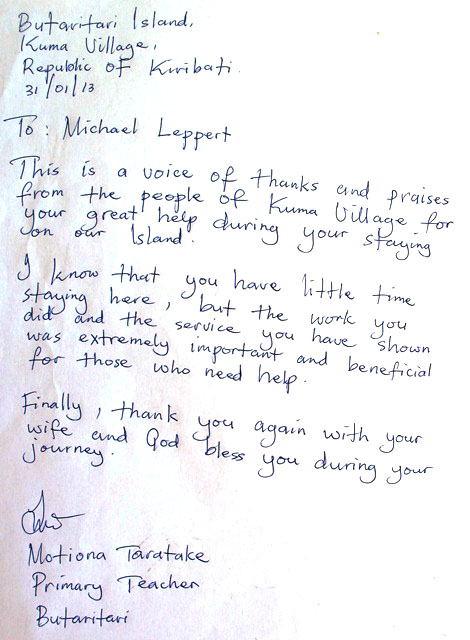 Butaritari Island,
Kuma Village,
Republic of Kiribati.
31/01/13
To: Michael Leppert
This is a voice of thanks and praises
from the people of Kuma Village for
your great help during your staying
on our Island.
I know that you have little time
staying here, but the work you
did and the service you have shown
was extremely important and beneficial
for those who need help.
Finally, thank you again with your
wife and God bless you during your
journey.
Motiona Taratake
Primary Teacher
Butaritari